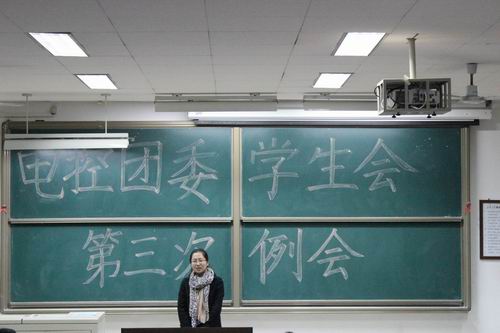 电控团委 学生会
第三次 例会